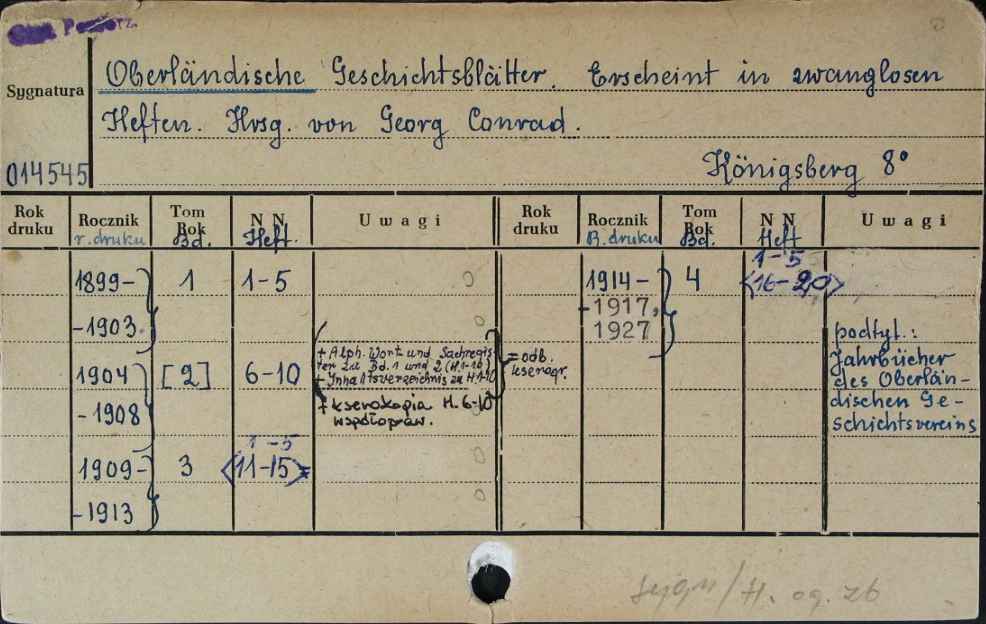 Sygnatura
014545
Oberländische Geschichtsblätter. Erscheint in zwanglosen
Heften. Hrsg. von Georg Conrad.
Königsberg 8°
Rok druku
Rocznik r. druku
Tom Rok Bd.
N N. Heft.
Uwagi
Rok druku
Rocznik B. druku
Tom Rok Bd.
N N. Heft
Uwagi
1899-
-1903.
1
1-5
1904
-1908
[2]
6-10
+ Alph. Wort- und Sachregis-
ter zu Bd. 1 und 2 (H. 1-10)
+ Inhaltsverzeichnis zu H. 1-10
+ kserokopia H. 6-10
współopraw.
= odb.
kserogr.
1909-
-1913
3
1-5
<11-15>
1914-
-1917,
1927
4
1-5
<16-20>
podtyt.:
Jahrbücher
des Oberlän-
dischen Ge-
schichtsvereins